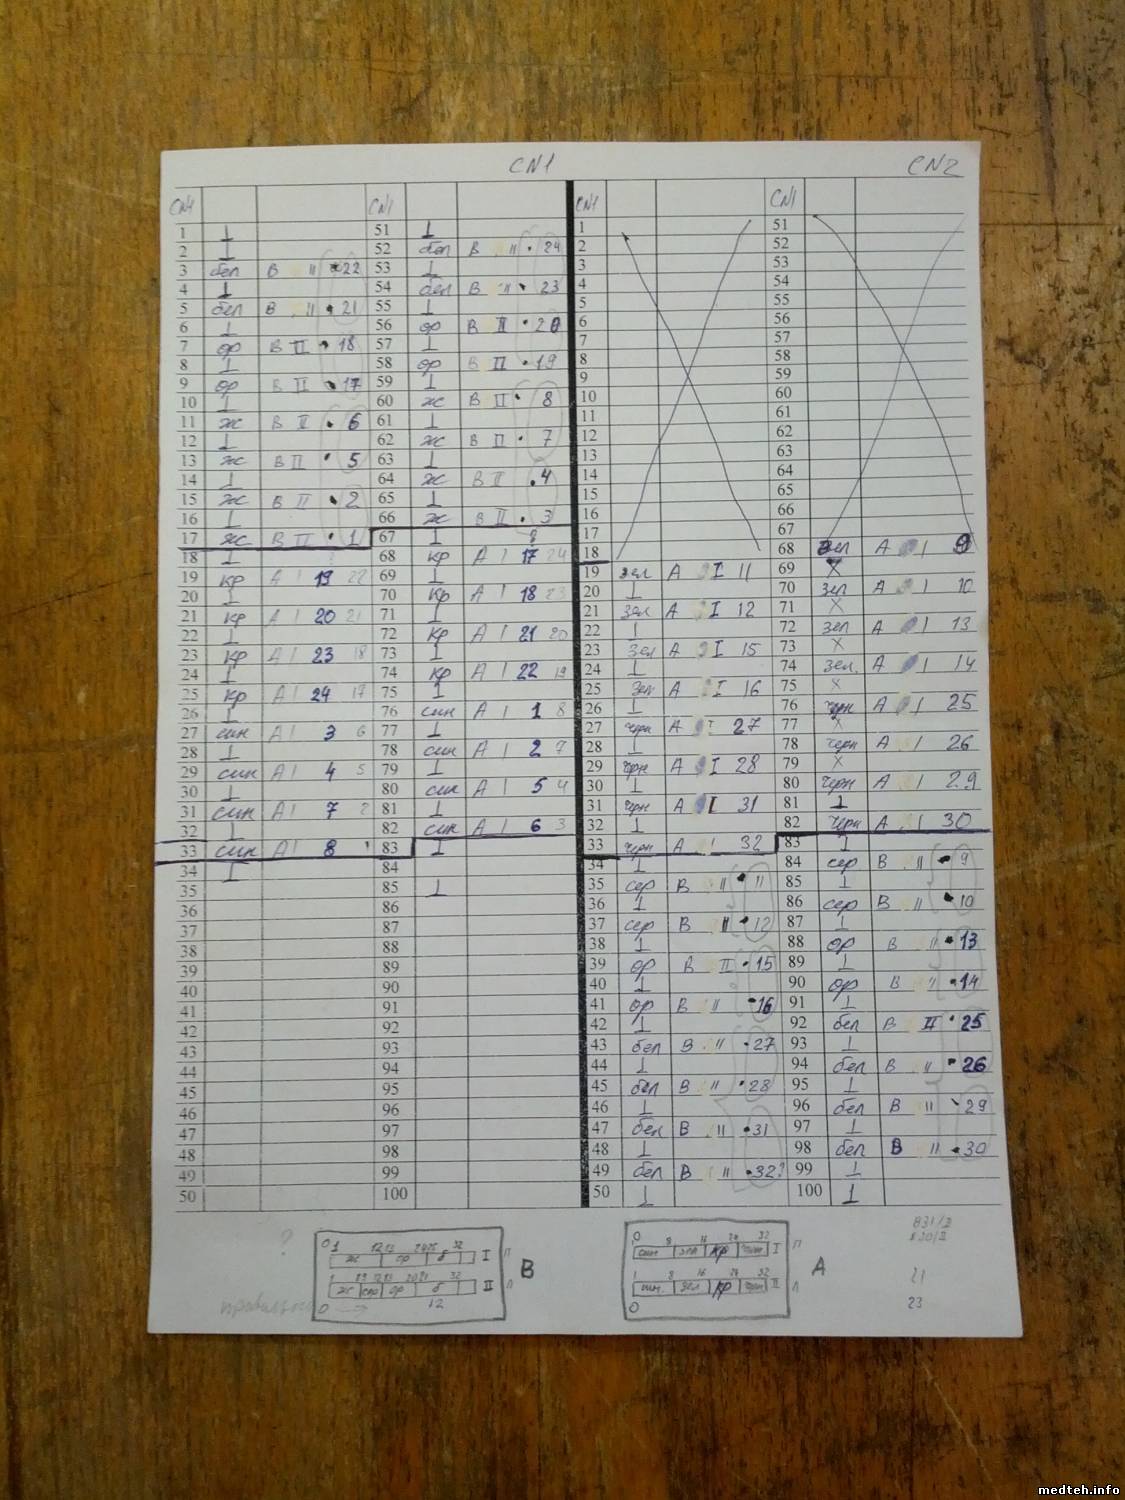 CN1 CN2
CN1 CN1 CN1 CN1
1 ⊥ 51 ⊥ 1 51
2 ⊥ 52 бел В II • 24 2 52
3 бел В II • 22 53 ⊥ 3 53
4 ⊥ 54 бел В II • 23 4 54
5 бел В II • 21 55 ⊥ 5 55
6 ⊥ 56 ор В II • 20 6 56
7 ор В II • 18 57 ⊥ 7 57
8 ⊥ 58 ор В II • 19 8 58
9 ор В II • 17 59 ⊥ 9 59
10 ⊥ 60 ж В II • 8 10 60
11 ж В II • 6 61 ⊥ 11 61
12 ⊥ 62 ж В II • 7 12 62
13 ж В II • 5 63 ⊥ 13 63
14 ⊥ 64 ж В II • 4 14 64
15 ж В II • 2 65 ⊥ 15 65
16 ⊥ 66 ж В II • 3 16 66
17 ж В II • 1 67 ⊥ 17 67
18 ⊥ 68 кр А I 17 24 18 68 зел А I 9
19 кр А I 19 22 69 ⊥ 19 зел А I 11 69 X
20 ⊥ 70 кр А I 18 23 20 ⊥ 70 зел А I 10
21 кр А I 20 21 71 ⊥ 21 зел А I 12 71 X
22 ⊥ 72 кр А I 21 20 22 ⊥ 72 зел А I 13
23 кр А I 23 18 73 ⊥ 23 зел А I 15 73 X
24 ⊥ 74 кр А I 22 19 24 ⊥ 74 зел. А I 14
25 кр А I 24 17 75 ⊥ 25 зел А I 16 75 X
26 ⊥ 76 син А I 1 8 26 ⊥ 76 черн А I 25
27 син А I 3 6 77 ⊥ 27 черн А I 27 77 X
28 ⊥ 78 син А I 2 7 28 ⊥ 78 черн А I 26
29 син А I 4 5 79 ⊥ 29 черн А I 28 79 X
30 ⊥ 80 син А I 5 4 30 ⊥ 80 черн А I 29
31 син А I 7 2 81 ⊥ 31 черн А I 31 81 ⊥
32 ⊥ 82 син А I 6 3 32 ⊥ 82 черн А I 30
33 син А I 8 1 83 ⊥ 33 черн А I 32 83 ⊥
34 ⊥ 84 34 ⊥ 84 сер В II • 9
35 85 ⊥ 35 сер В II • 11 85 ⊥
36 86 36 ⊥ 86 сер В II • 10
37 87 37 сер В II • 12 87 ⊥
38 88 38 ⊥ 88 ор В II • 13
39 89 39 ор В II • 15 89 ⊥
40 90 40 ⊥ 90 ор В II • 14
41 91 41 ор В II • 16 91 ⊥
42 92 42 ⊥ 92 бел В II • 25
43 93 43 бел В II • 27 93 ⊥
44 94 44 ⊥ 94 бел В II • 26
45 95 45 бел В II • 28 95 ⊥
46 96 46 ⊥ 96 бел В II • 29
47 97 47 бел В II • 31 97 ⊥
48 98 48 ⊥ 98 бел В II • 30
49 99 49 бел В II • 32? 99 ⊥
50 100 50 ⊥ 100 ⊥
? 1 32 8 16 24 32
ж ор б I П В син зел кр черн I П А
1 32 1 8 16 24 32
ж сер ор б II Л син. зел кр черн II Л
12
21
23
medteh.info